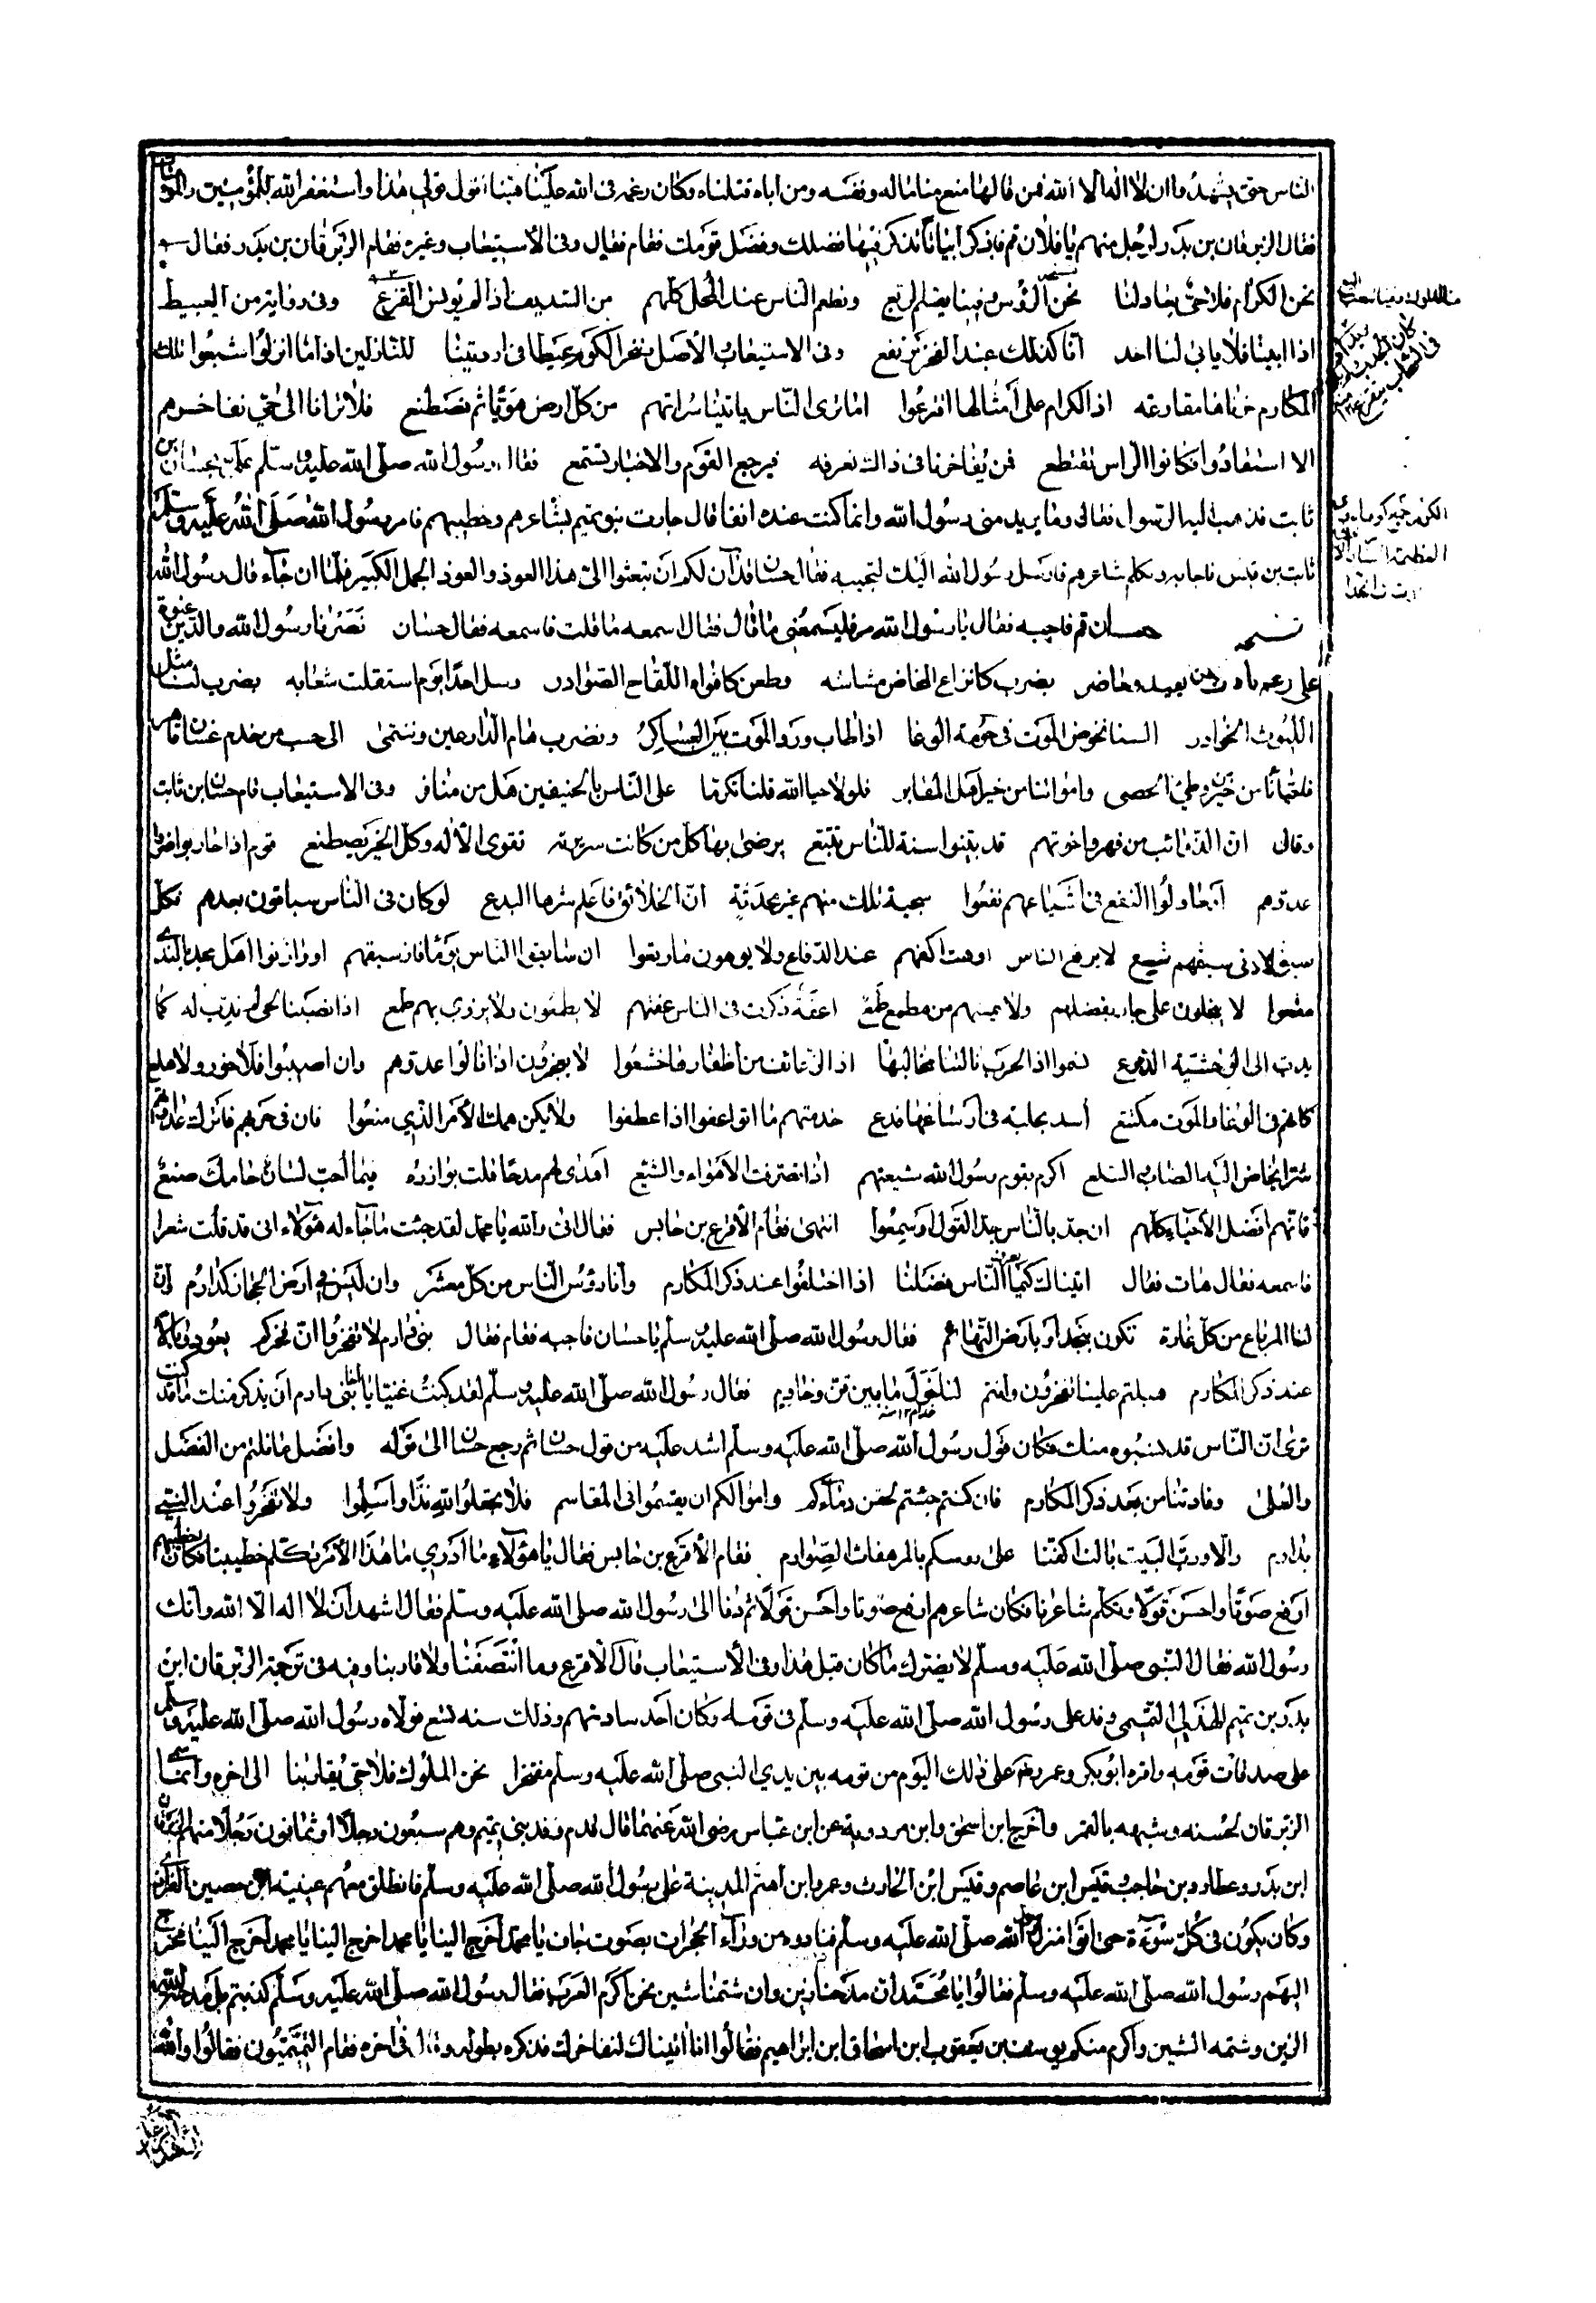 الناس حتى يشهدوا ان لا اله الا الله فمن قالها منع منا ماله ونفسه ومن اباه قتلناه وكان رغمه فى الله علينا هينا اقول قولى هذا واستغفر الله للمؤمنين والمؤمنات
فقال الزبرقان بن بدر لرجل منهم يا فلان قم فاذكر ابياتا تذكر فيها فضلك وفضل قومك فقام فقال وفى الاستيعاب وغيره فقام الزبرقان بن بدر فقال
نحن الكرام فلا حى يعادلنا نحن الرؤس وفينا يقسم الربع ونطعم الناس عند المحل كلهم من السديف اذا لم يؤنس القزع وفى رواية من العبيط
اذا ابينا فلا يابى لنا احد انا كذلك عند الفخر نرتفع وفى الاستيعاب الاصل ننحر الكوم عبيطا فى ارومتنا للنازلين اذا ما انزلوا شبعوا تلك
المكارم حزناها مقارعة اذ الكرام على امثالها اقترعوا اما ترى الناس ياتينا سراتهم من كل ارض هويا ثم نصطنع فلا ترانا الى حى نفاخرهم
الا استفادوا فكانوا الراس نقتطع فمن يفاخرنا فى ذالك نعرفه فيرجع القوم والاخبار تستمع فقال رسول الله صلى الله عليه وسلم على بحسان بن
ثابت فذهب اليه الرسول فقال وما يريد منى رسول الله وانما كنت عنده انفا قال جاءت بنو تميم بشاعرهم وخطيبهم فامر رسول الله صلى الله عليه وسلم
ثابت بن قيس فاجابه وتكلم شاعرهم فارسل رسول الله اليك لتجيبه فقال حسان قد آن لكم ان تبعثوا الى هذا العود والعود الجمل الكبير فلما ان جاء قال رسول الله
حسان قم فاجبه فقال يا رسول الله مره فليسمعنى ما قال فقال اسمعه ما قلت فاسمعه فقال حسان نصرنا رسول الله والدين عنوة
على رغم باد من بعيد وحاضر بضرب كانزاع المخاض مشاشه وطعن كافواه اللقاح الصوادر وسل احدا يوم استقلت شعابه بضرب لنا مثل
الليوث الخوادر السنا نخوض الموت فى حومة الوغا اذا طاب ورد الموت بين العساكر ونضرب هام الدارعين وننتمى الى حسب من جذم غسان قاهر
فاحيانا من خير وطئ الحصى وامواتنا من خير اهل المقابر فلولا حيا الله قلنا تكرما على الناس بالخيفين هل من منافر وفى الاستيعاب قام حسان بن ثابت
وقال ان الذوائب من فهر واخوتهم قد بينوا سنة للناس تتبع يرضى بها كل من كانت سريرته تقوى الاله وكل الخير يصطنع قوم اذا حاربوا ضروا
عدوهم او حاولوا النفع فى اشياعهم نفعوا سجية تلك منهم غير محدثة ان الخلائق فاعلم شرها البدع لو كان فى الناس سباقون بعدهم فكل
سبق لادنى سبقهم تبع لا يرفع الناس اوهت اكفهم عند الدفاع ولا يوهون ما رقعوا ان سابقوا الناس يوما فاز سبقهم او وازنوا اهل مجد بالندى
متعوا لا يبخلون على جار بفضلهم ولا يمسهم من مطمع طمع اعفة ذكرت فى الناس عفتهم لا يطمعون ولا يزرى بهم طمع اذا نصبنا لحى لم ندب له كما
يدب الى الوحشية الذرع نسموا اذ الحرب نالتنا مخالبها اذا الزعانف من اظفارها خشعوا لا يفخرون اذا نالوا عدوهم وان اصيبوا فلا خور ولا هلع
كانهم فى الوغا والموت مكتنع أسد بحلية فى ارساغها فدع خذ منهم ما اتوا عفوا اذا عطفوا ولا يكن همك الامر الذى منعوا فان فى حربهم فاترك عداوتهم
شرا يخاض اليه الصاب والسلع اكرم بقوم رسول الله شيعتهم اذا تفرقت الاهواء والشيع اهدى لهم مدحا قلب يوازره فيما احب لسان حائك صنع
فانهم افضل الاحياء كلهم ان جد بالناس جد القول او سمعوا انتهى فقام الاقرع بن حابس فقال انى والله يا محمد لقد جئت ما جاء له هؤلاء انى قد قلت شعرا
فاسمعه فقال هات فقال اتيناك كيما يعرف الناس فضلنا اذا اختلفوا عند ذكر المكارم وانا رؤس الناس من كل معشر وان ليس فى ارض الحجاز كدارم وان
لنا المرباع من كل غارة تكون بنجد او بارض التهائم فقال رسول الله صلى الله عليه وسلم يا حسان فاجبه فقام فقال بنى دارم لا تفخروا ان فخركم يعود وبالا
عند ذكر المكارم هبلتم علينا تفخرون وانتم لنا خول ما بين قن وخادم فقال رسول الله صلى الله عليه وسلم لقد كنت غنيا يا اخا بنى دارم ان يذكر منك ما قد كنت
ترى ان الناس قد نسوه منك فكان قول رسول الله صلى الله عليه وسلم اشد عليه من قول حسان ثم رجع حسان الى قوله وافضل ما نلتم من الفضل
والعلى وفادتنا من بعد ذكر المكارم فان كنتم جئتم لحقن دمائكم واموالكم ان يقسموا فى المقاسم فلا تجعلوا لله ندا واسلموا ولا تفخروا عند النبى
بدارم والا ورب البيت مالت اكفنا على روسكم بالمرهفات الصوارم فقام الاقرع بن حابس فقال يا هؤلاء ما ادرى ما هذا الامر تكلم خطيبنا فكان خطيبهم
ارفع صوتا واحسن قولا وتكلم شاعرنا فكان شاعرهم ارفع صوتا واحسن قولا ثم دنا الى رسول الله صلى الله عليه وسلم فقال اشهد ان لا اله الا الله وانك
رسول الله فقال النبى صلى الله عليه وسلم لا يضرك ما كان قبل هذا وفى الاستيعاب قال الاقرع وما انتصفنا ولا قاربنا وفيه فى ترجمة الزبرقان ابن
بدر بن تميم الهذيلى التميمى وفد على رسول الله صلى الله عليه وسلم فى قومه وكان احد ساداتهم وذلك سنه تسع فولاه رسول الله صلى الله عليه وسلم
على صدقات قومه واقره ابو بكر وعمر على ذلك اليوم من قومه بين يدى النبى صلى الله عليه وسلم مفتخرا نحن الملوك فلا حى يقاربنا الى اخره وانما سمى
الزبرقان لحسنه وشبهه بالقمر واخرج ابن اسحق وابن مردوية عن ابن عباس رضى الله عنهما قال قدم وفد بنى تميم وهم سبعون رجلا او ثمانون رجلا منهم الزبرقان
ابن بدر وعطارد بن حاجب وقيس ابن عاصم وقيس ابن الحارث وعمرو ابن اهتم المدينة على رسول الله صلى الله عليه وسلم فانطلق معهم عيينة ابن حصين الفزارى
وكان يكون فى كل سوءة حتى اتوا منزل رسول الله صلى الله عليه وسلم فنادوه من وراء الحجرات بصوت جاف يا محمد اخرج الينا يا محمد اخرج الينا يا محمد اخرج الينا فخرج
اليهم رسول الله صلى الله عليه وسلم فقالوا يا محمد ان مدحنا زين وان شتمنا شين نحن اكرم العرب فقال رسول الله صلى الله عليه وسلم كذبتم بل مدحة الله
الزين وشتمه الشين واكرم منكم يوسف بن يعقوب ابن اسحاق ابن ابراهيم فقالوا انا اتيناك لنفاخرك فذكره بطوله وقال فى اخره فقام التميميون فقالوا والله